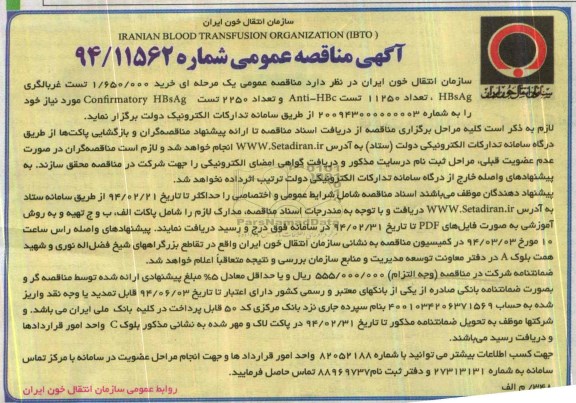 سازمان انتقال خون ایران
IRANIAN BLOOD TRANSFUSION ORGANIZATION (IBTO )
آگهی مناقصه عمومی شماره ۹۴/۱۱۵۶۲
سازمان انتقال خون ایران
سازمان انتقال خون ایران در نظر دارد مناقصه عمومی یک مرحله ای خرید ۱/۶۵۰/۰۰۰ تست غربالگری
HBsAg ، تعداد ۱۱۲۵۰ تست Anti-HBc و تعداد ۲۲۵۰ تست Confirmatory HBsAg مورد نیاز خود
را به شماره ۲۰۰۹۴۳۰۰۰۰۰۰۰۰۳ از طریق سامانه تدارکات الکترونیک دولت برگزار نماید.
لازم به ذکر است کلیه مراحل برگزاری مناقصه از دریافت اسناد مناقصه تا ارائه پیشنهاد مناقصه‌گران و بازگشایی پاکت‌ها از طریق
درگاه سامانه تدارکات الکترونیکی دولت (ستاد) به آدرس WWW.Setadiran.ir انجام خواهد شد و لازم است مناقصه‌گران در صورت
عدم عضویت قبلی، مراحل ثبت نام درسایت مذکور و دریافت گواهی امضای الکترونیکی را جهت شرکت در مناقصه محقق سازند. به
پیشنهادهای واصله خارج از درگاه سامانه تدارکات الکترونیکی دولت ترتیب اثرداده نخواهد شد.
پیشنهاد دهندگان موظف می‌باشند اسناد مناقصه شامل شرایط عمومی و اختصاصی را حداکثر تا تاریخ ۹۴/۰۲/۲۱ از طریق سامانه ستاد
به آدرس WWW.Setadiran.ir دریافت و با توجه به مندرجات اسناد مناقصه، مدارک لازم را شامل پاکات الف، ب و ج تهیه و به روش
آموزشی به صورت فایل‌های PDF تا تاریخ ۹۴/۰۲/۳۱ در سامانه فوق درج و رسید دریافت نمایند. پیشنهادهای واصله راس ساعت
۱۰ مورخ ۹۴/۰۳/۰۳ در کمیسیون مناقصه به نشانی سازمان انتقال خون ایران واقع در تقاطع بزرگراههای شیخ فضل‌اله نوری و شهید
همت بلوک A در دفتر معاونت توسعه مدیریت و منابع سازمان بررسی و نتیجه متعاقباً اعلام خواهد شد.
ضمانتنامه شرکت در مناقصه (وجه التزام) ۵۵۵/۰۰۰/۰۰۰ ریال و یا حداقل معادل ۵% مبلغ پیشنهادی ارائه شده توسط مناقصه گر و
بصورت ضمانتنامه بانکی صادره از یکی از بانکهای معتبر و رسمی کشور دارای اعتبار تا تاریخ ۹۴/۰۶/۰۳ قابل تمدید یا وجه نقد واریز
شده به حساب ۴۰۰۱۰۳۴۲۰۶۳۷۱۵۶۹ بنام سپرده جاری نزد بانک مرکزی کد ۵۰ قابل پرداخت در کلیه بانک ملی ایران می باشد. و
شرکتها موظف به تحویل ضمانتنامه مذکور تا تاریخ ۹۴/۰۲/۳۱ در پاکت لاک و مهر شده به نشانی مذکور بلوک C واحد امور قراردادها
و دریافت رسید می‌باشند.
جهت کسب اطلاعات بیشتر می توانید با شماره ۸۲۰۵۲۱۸۸ واحد امور قرارداد ها و جهت انجام مراحل عضویت در سامانه با مرکز تماس
سامانه به شماره ۲۷۳۱۳۱۳۱ و دفتر ثبت نام۸۸۹۶۹۷۳۷ تماس حاصل فرمایید.
۳۴۸/ م الف
روابط عمومی سازمان انتقال خون ایران